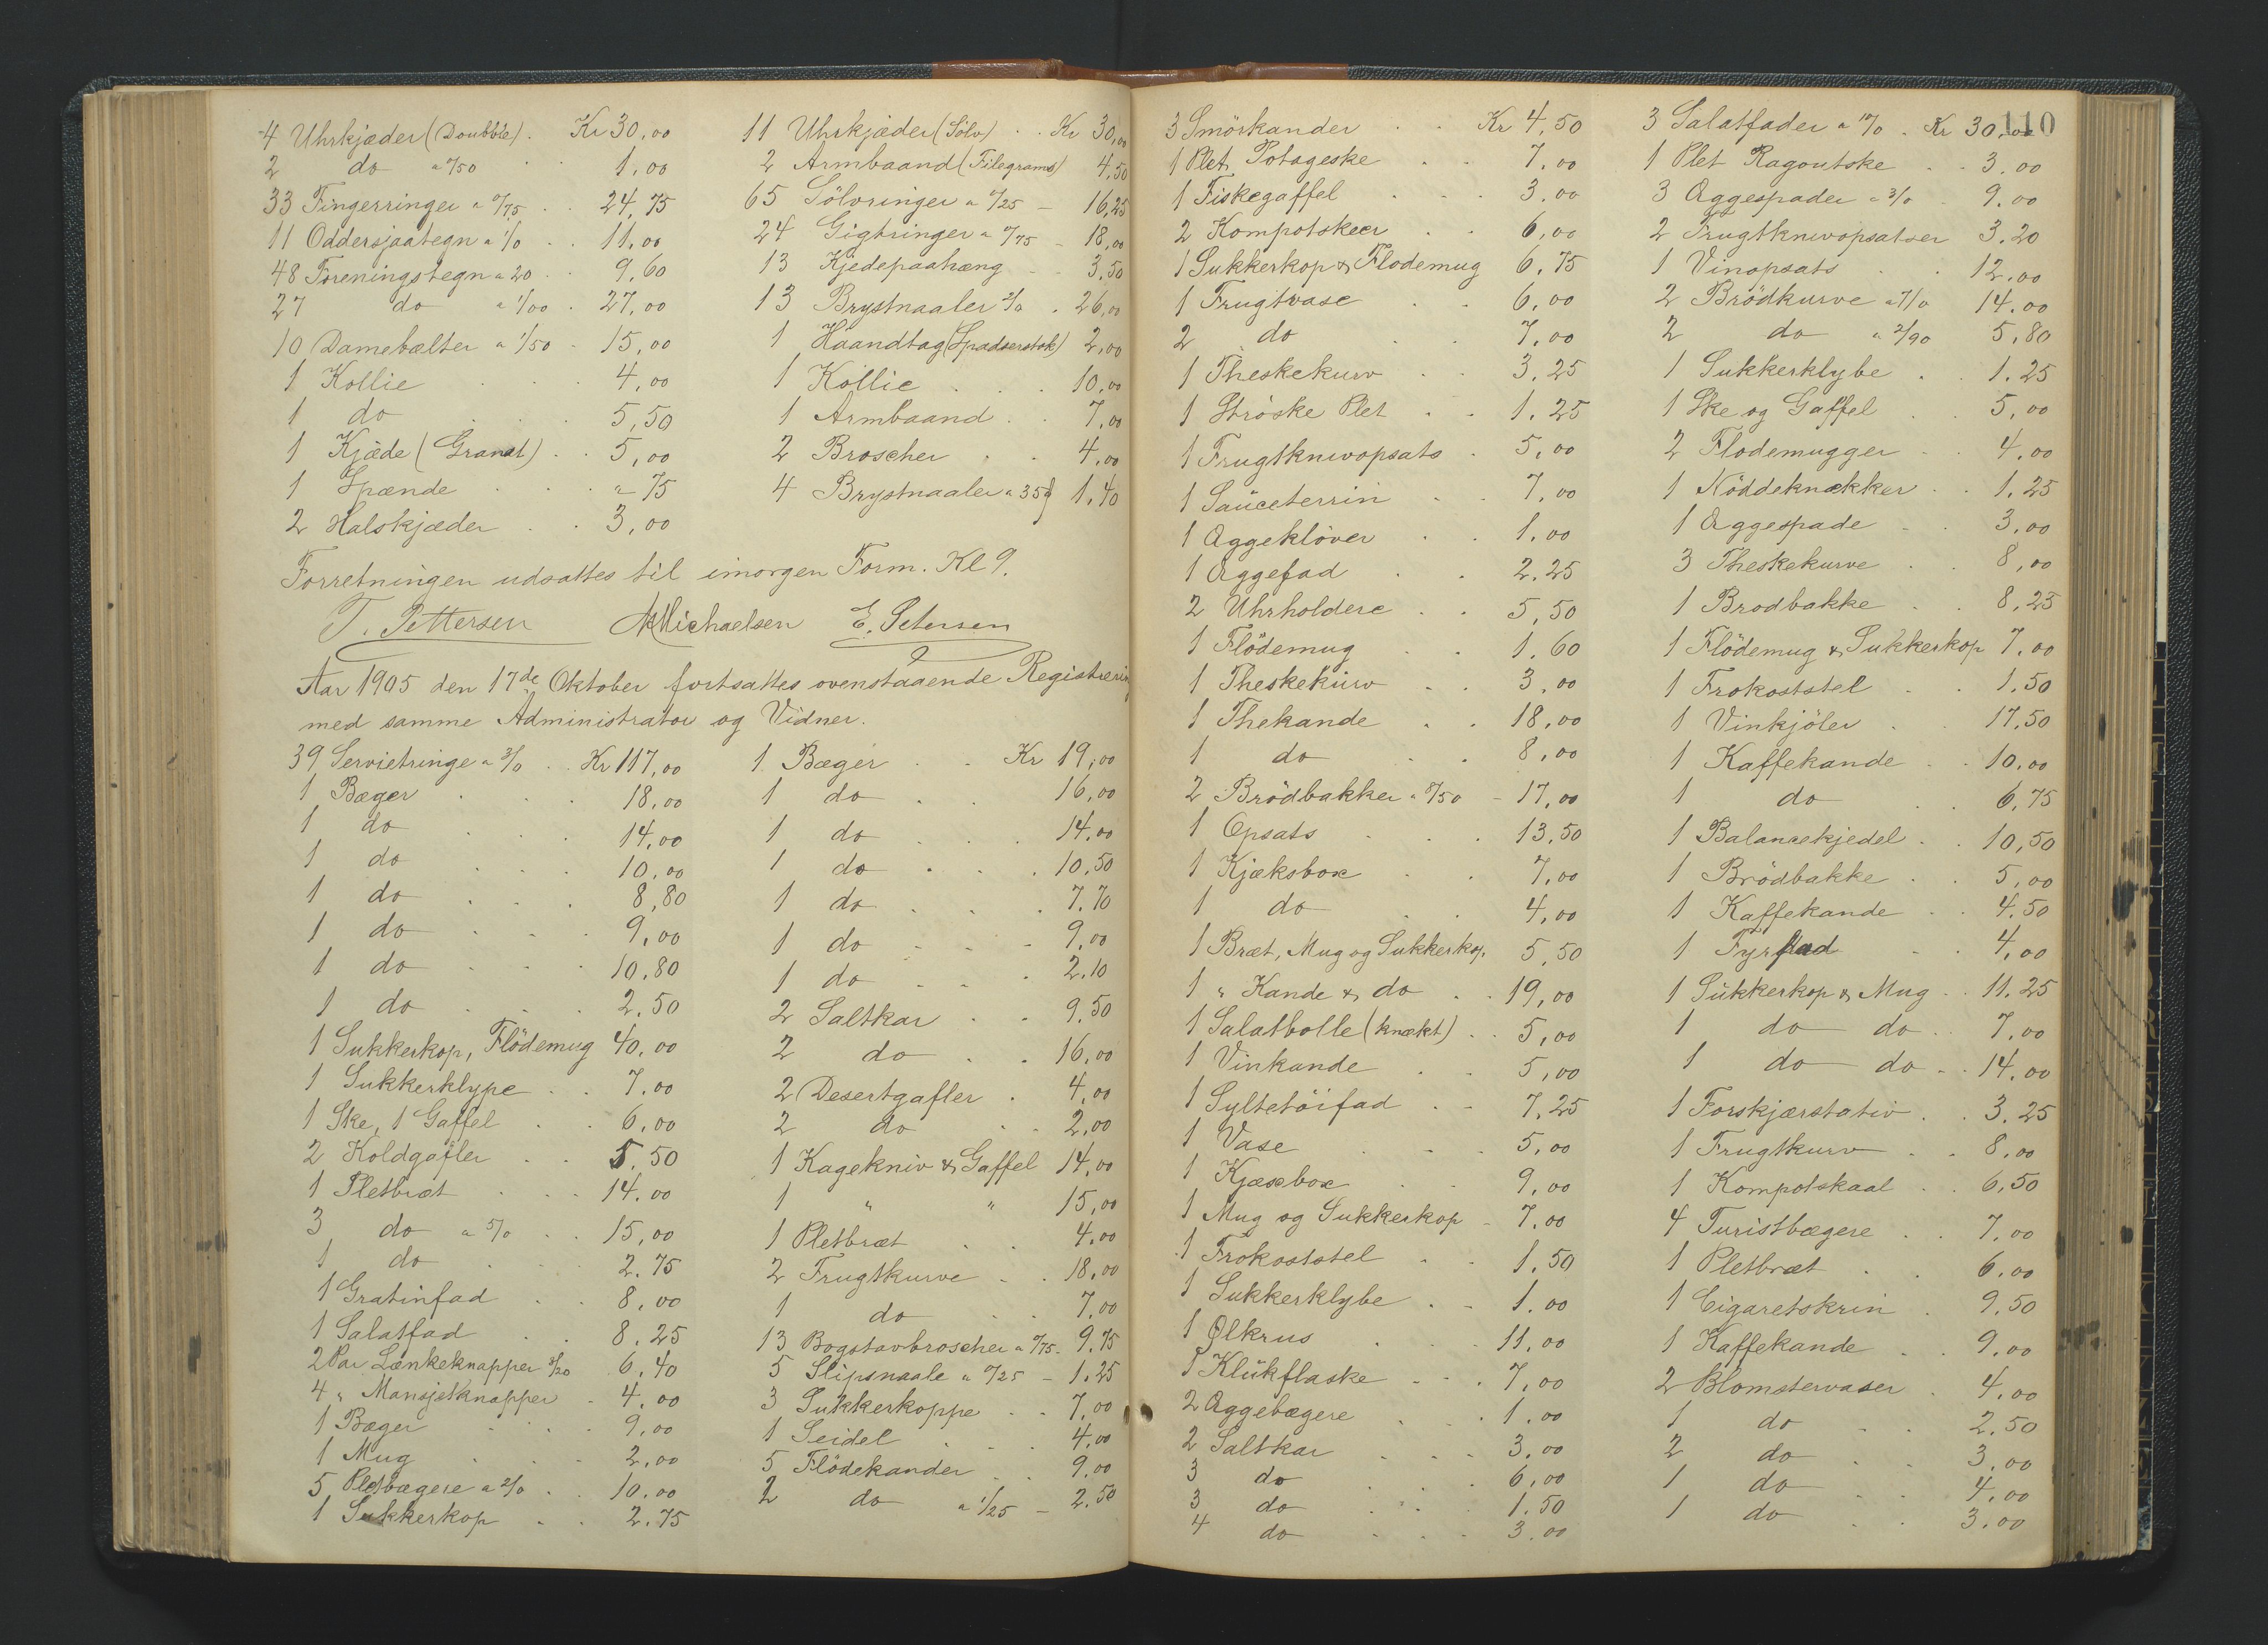 4 Uhrkjæder (Doubble) . Kr 30,00
2 do a 0/50 1,00
33 Fingerringer a 0/75 . . 24,75
11 Oddersjaategn a 1/0 . . 11,00
48 Foreningstegn a 20 . . 9,60
27 do a 1/00 . 27,00
10 Damebælter a 1/50 . 15,00
1 Kollie . . . 4,00
1 do . . . 5,50
1 Kjæde (Granat) . . 5,00
1 Spænde . . . " 75
2 Halskjæder . . 3,00
11 Uhrkjæder (Sölv) . . Kr 30,00
2 Armbaand (Filegrams) 4,50
65 Sölvringer a 0/25 - 16,25
24 Gigtringer a 0/75 - 18,00
13 Kjedepaahæng - 3,50
13 Brystnaaler 2/0 . 26,00
1 Haandtag (Spadserstok) 2,00
1 Kollie . . . 10,00
1 Armbaand . . 7,00
2 Broscher . . 4,00
4 Brystnaaler a 35 1,40
Forretningen udsattes til imorgen Form. Kl 9.
T. Pettersen Michaelsen E. Petersen
Aar 1905 den 17de Oktober fortsattes ovenstaaende Registrering
med samme Administrator og Vidner.
39 Servietringe a 3/0 . . Kr 117,00
1 Bæger . . . 18,00
1 do . . . 14,00
1 do . . . 10,00
1 do . . . 8,80
1 do . . . 9,00
1 do . . . 10,80
1 do . . . 2.50
1 Sukkerkop, Flödemug 40,00
1 Sukkerklype . . 7.00
1 Ske, 1 Gaffel . . 6,00
2 Koldgafler . . 5.50
1 Pletbræt . . . 14.00
3 do a 5/0 . . 15,00
1 do . . . 2.75
1 Gratinfad . . 8,00
1 Salatfad . . 8.25
2 Par Lænkeknapper 3/20 6,40
4 " Mansjetknapper . 4.00
1 Bæger . . . 9,00
1 Mug . . . 2,00
5 Pletbægere a 2/0 . . 10.00
1 Sukkerkop . . 2.75
1 Bæger . . Kr 19,00
1 do . . 16,00
1 do . . . 14.00
1 do . . . 10,50
1 do . . . 7.70
1 do . . . 9,00
1 do . . . 2.10
2 Saltkar . . 9.50
2 do . . 16,00
2 Desertgafler . 4,00
2 do . . 2,00
1 Kagekniv & Gaffel 14,00
1 " " 15,00
1 Pletbræt . . 4.00
2 Frugtkurve . . 18,00
1 do . . 7,00
13 Bogstavbroscher a 0/75 . 9.75
5 Slipsnaale a 0/25 - 1.25
3 Sukkerkoppe . . 7,00
1 Seidel . . . 4,00
5 Flödekander . . 9.00
2 do a 1/25 - 2.50
110
3 Smörkander . . Kr 4,50
1 Plet Potageske . . 7.00
1 Fiskegaffel . . . 3,00
2 Kompotskeer . . 6,00
1 Sukkerkop & Flodemug 6,75
1 Frugtvase . . 6,00
2 do . . 7,00
1 Theskekurv . . 3,25
1 Ströske Plet . . 1.25
1 Frugtknivopsats . 5,00
1 Sauceterrin . . 7,00
1 Æggeklöver . . 1.00
1 Æggefad . . 2.25
2 Uhrholdere . . 5,50
1 Flödemug . . 1.60
1 Theskekurv . . 3,00
1 Thekande . . 18,00
1 do . . 8,00
2 Brödbakker a 8/50 - 17,00
1 Opsats . . . 13.50
1 Kjæksbox . . 7,00
1 do . . 4,00
1 Bræt, Mug og Sukkerkop. 5,50
1 " Kande & do . . 19,00
1 Salatbolle (knækt) . . 5,00
1 Vinkande . . 5,00
1 Syltetöifad . . 7,25
1 Vase . . . 5,00
1 Kjæxbox . . 9,00
1 Mug og Sukkerkop - 7.00
1 Frokoststel . . 1,50
1 Sukkerklybe . . 1.00
1 Ölkrus . . 11,00
1 Klukflaske . . . 7,00
2 Æggebægere . . . 1.00
2 Saltkar . . . 3.00
3 do . . . 6,00
3 do . . . 1.50
4 do . . . 3.00
3 Salatfader a 10/0 . Kr 30,00
1 Plet Ragoutske . . 3.00
3 Æggespader a 3/0 - 9.00
2 Frugtknivopsatser 3.20
1 Vinopsats . . 12,00
2 Brödkurve a 7/0 14.00
2 do a 2/90 5,80
1 Sukkerklybe . . 1.25
1 Ske og Gaffel . . 5,00
2 Flodemugger . . 4,00
1 Nöddeknækker . . 1.25
1 Æggespade - . 3,00
3 Theskekurve . . 8,00
1 Brodbakke . . 8,25
1 Flödemug & Sukkerkop 7.00
1 Frokoststel . . 1.50
1 Vinkjöler . . 17.50
1 Kaffekande . . 10.00
1 do . . 6,75
1 Balancekjedel . . 10,50
1 Brödbakke . . 5,00
1 Kaffekande . . 4.50
1 Fyrfad - . 4,00
1 Sukkerkop & Mug . . 11.25
1 do do . . 7,00
1 do do . . 14.00
1 Forskjærstativ . . 3.25
1 Frugtkurv . . 8,00
1 Kompotskaal . . 6,50
4 Turistbægere . . 7,00
1 Pletbræt . . 6.00
1 Cigaretskrin . 9.50
1 Kaffekande . . 9.00
2 Blomstervaser . 4.00
1 do . . 2.50
2 do . . 3,00
1 do . . 4.00
1 do . . 3.00